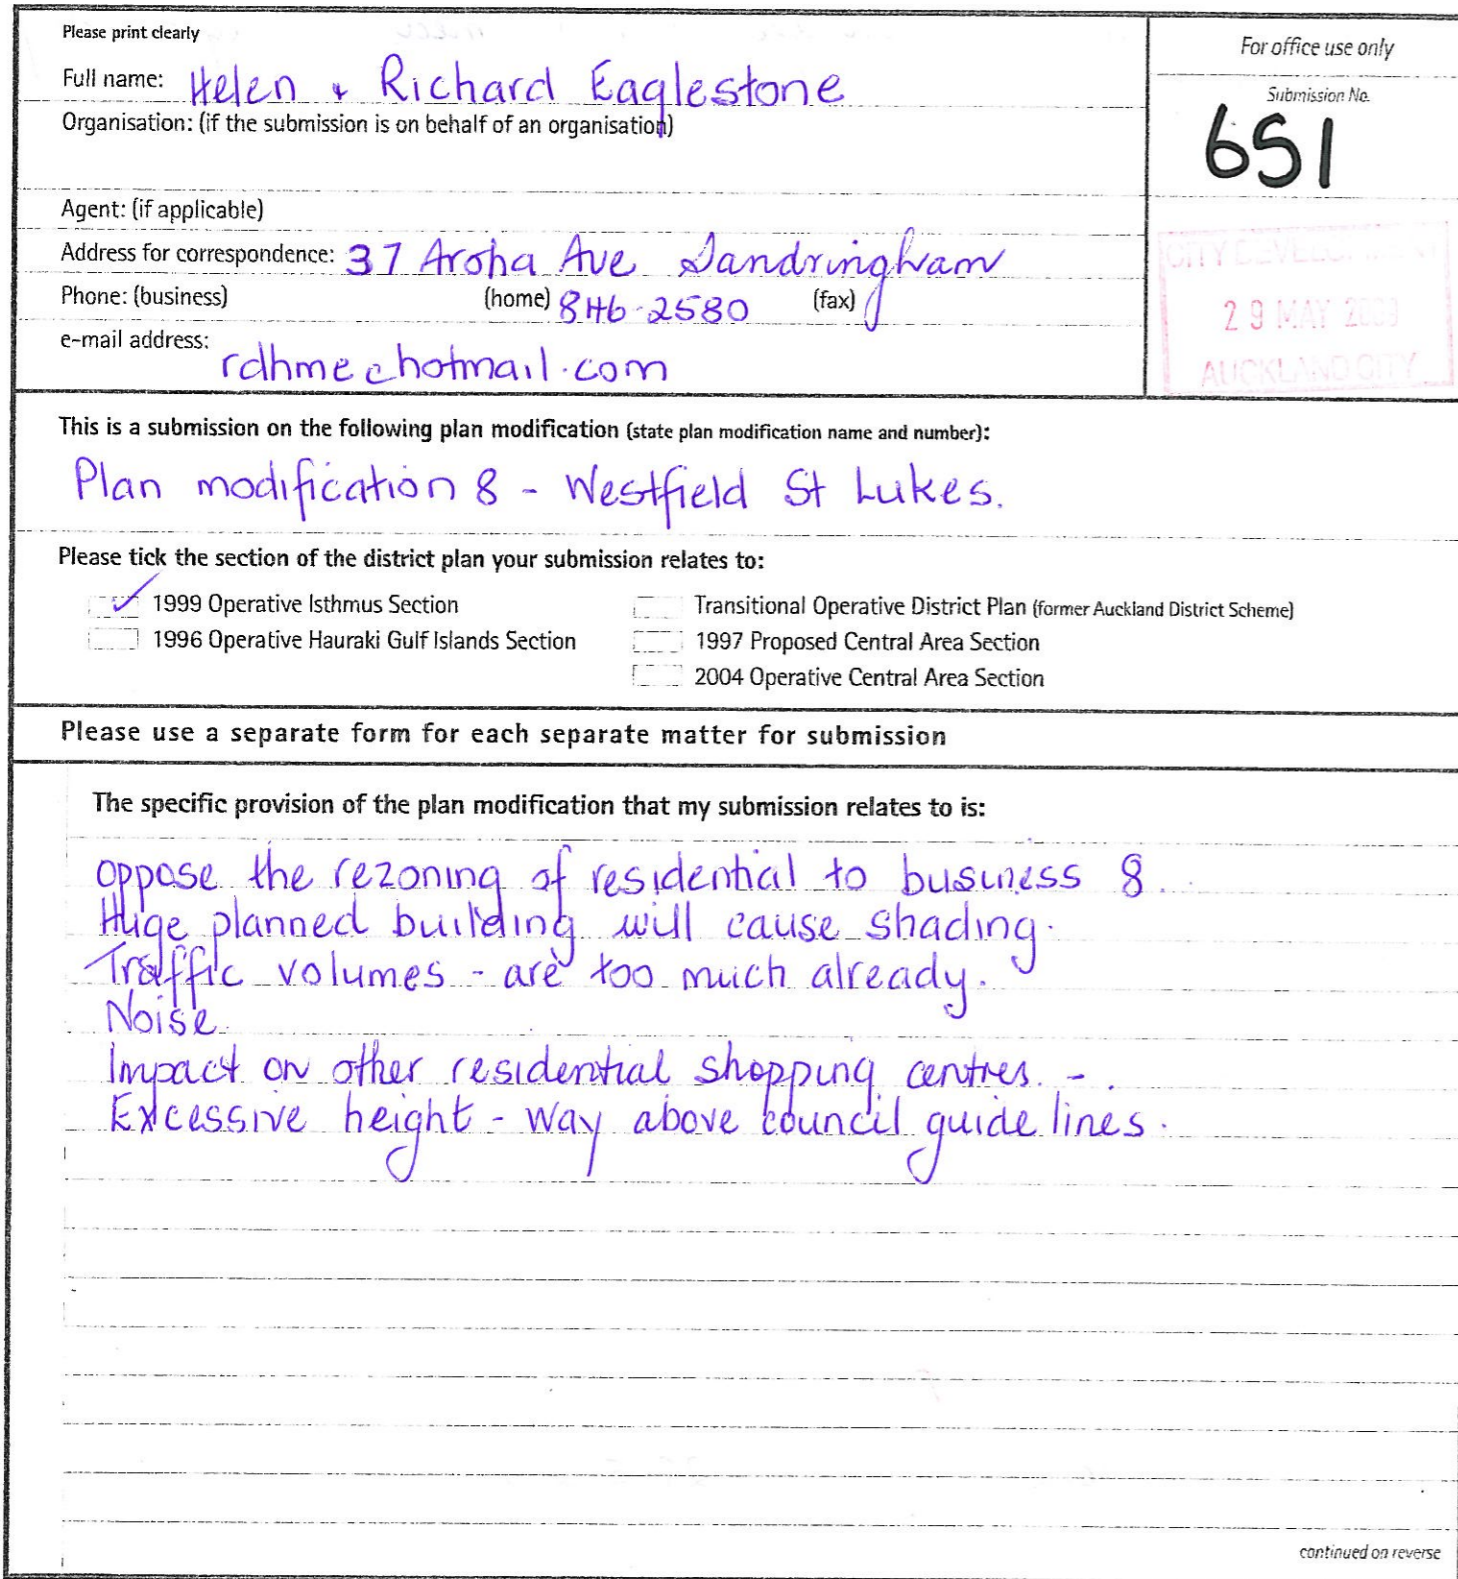 Please print clearly
Full name: Helen + Richard Eaglestone
Organisation: (if the submission is on behalf of an organisation)
Agent: (if applicable)
Address for correspondence: 37 Aroha Ave Sandringham
Phone: (business) (home) 846-2580 (fax)
e-mail address: rdhme@hotmail.com
For office use only
Submission No.
651
CITY DEVELOPMENT
29 MAY 2009
AUCKLAND CITY
This is a submission on the following plan modification (state plan modification name and number):
Plan modification 8 - Westfield St Lukes.
Please tick the section of the district plan your submission relates to:
✓ 1999 Operative Isthmus Section
1996 Operative Hauraki Gulf Islands Section
Transitional Operative District Plan (former Auckland District Scheme)
1997 Proposed Central Area Section
2004 Operative Central Area Section
Please use a separate form for each separate matter for submission
The specific provision of the plan modification that my submission relates to is:
oppose the rezoning of residential to business 8.
Huge planned building will cause shading.
Traffic volumes - are too much already.
Noise
Impact on other residential shopping centres. - .
Excessive height - way above council guide lines.
continued on reverse